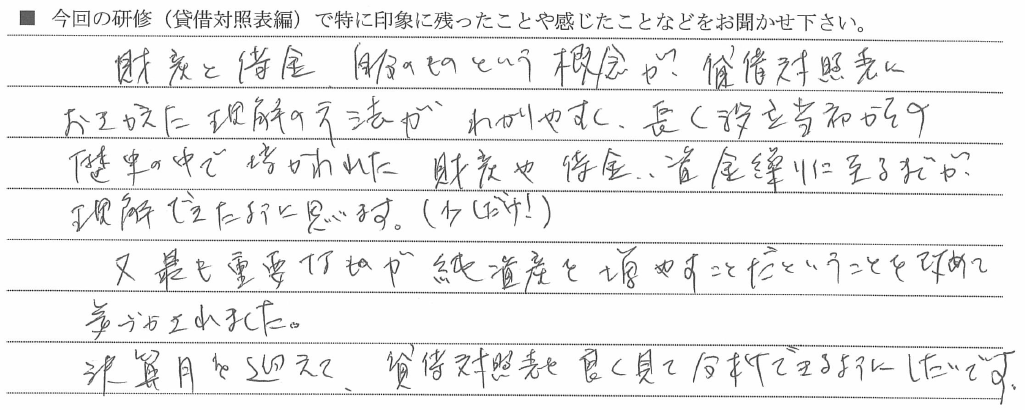 ■ 今回の研修（貸借対照表編）で特に印象に残ったことや感じたことなどをお聞かせ下さい。
財産と借金 自分のものという概念が、貸借対照表に
おきかえた理解の方法がわかりやすく、長く設立当初からその
歴史の中で培かわれた財産や借金、資金繰りに至るまでが
理解できたように思います。(少しだけ!)
又最も重要なものが純資産を増やすことだということを改めて
気づかされました。
決算月を迎えて、貸借対照表を良く見て分析できるようにしたいです。